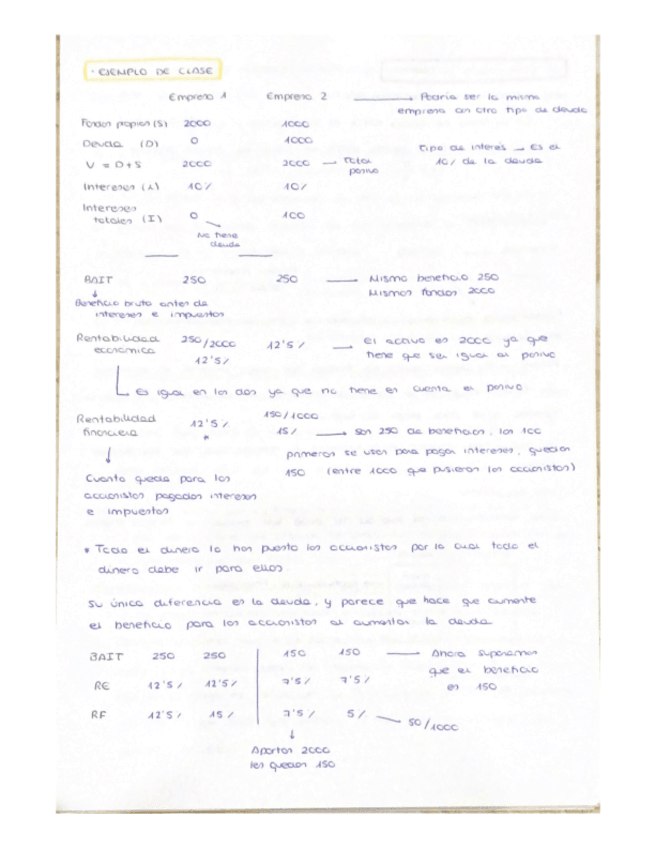 · EJEMPLO DE CLASE
Empresa 1 Empresa 2 → Podría ser la misma
empresa con otro tipo de deuda
Fondos propios (S) 2000 1000
Deuda (D) 0 1000
Tipo de interés → Es el
10% de la deuda
V = D+S 2000 2000 → Total
pasivo
Intereses (i) 10% 10%
Intereses
totales (I) 0 100
No tiene
deuda
BAIT 250 250 — Mismo beneficio 250
Mismos fondos 2000
↓
Beneficio bruto antes de
intereses e impuestos
Rentabilidad 250/2000 12'5% → el activo es 2000 ya que
económica 12'5% tiene que ser igual al pasivo
Es igual en los dos ya que no tiene en cuenta el pasivo
Rentabilidad 12'5% 150/1000
financiera * 15% → son 250 de beneficios, los 100
primeros se usan para pagar intereses, quedan
150 (entre 1000 que pusieron los accionistas)
↓
Cuanto queda para los
accionistas pagados intereses
e impuestos
* Todo el dinero lo han puesto los accionistas por lo cual todo el
dinero debe ir para ellos.
Su única diferencia es la deuda, y parece que hace que aumente
el beneficio para los accionistas al aumentar la deuda
BAIT 250 250 150 150 — Ahora suponemos
que el beneficio
es 150
RE 12'5% 12'5% 7'5% 7'5%
RF 12'5% 15% 7'5% 5% — 50/1000
↓
Aportan 2000
les quedan 150